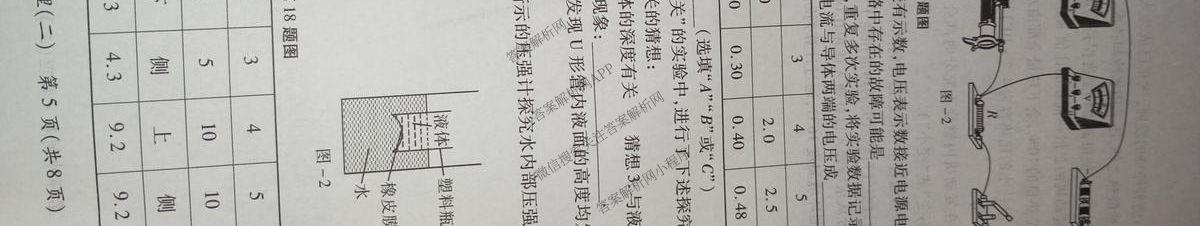 R
图-2
题图
有示数,电压表示数接近电源电
路中存在的故障可能是
,重复多次实验,将实验数据记录
电流与导体两端的电压成
3 4 5
0 2.0 2.5
0 0.30 0.40 0.48
(选填“A”“B”或“C”)
关”的实验中,进行了下述探究
关的猜想:
体的深度有关 猜想3:与液
现象:
发现U形管内液面的高度均
示的压强计探究水内部压强
液体
塑料瓶
橡皮膜
水
图-2
18题图
3 4 5
5 10 10
侧 上 侧
3 4.3 9.2 9.2
理(二) 第5页(共8页)
答案解析网
答案解析网APP
微信搜索关注答案解析网
答案解析网小程序